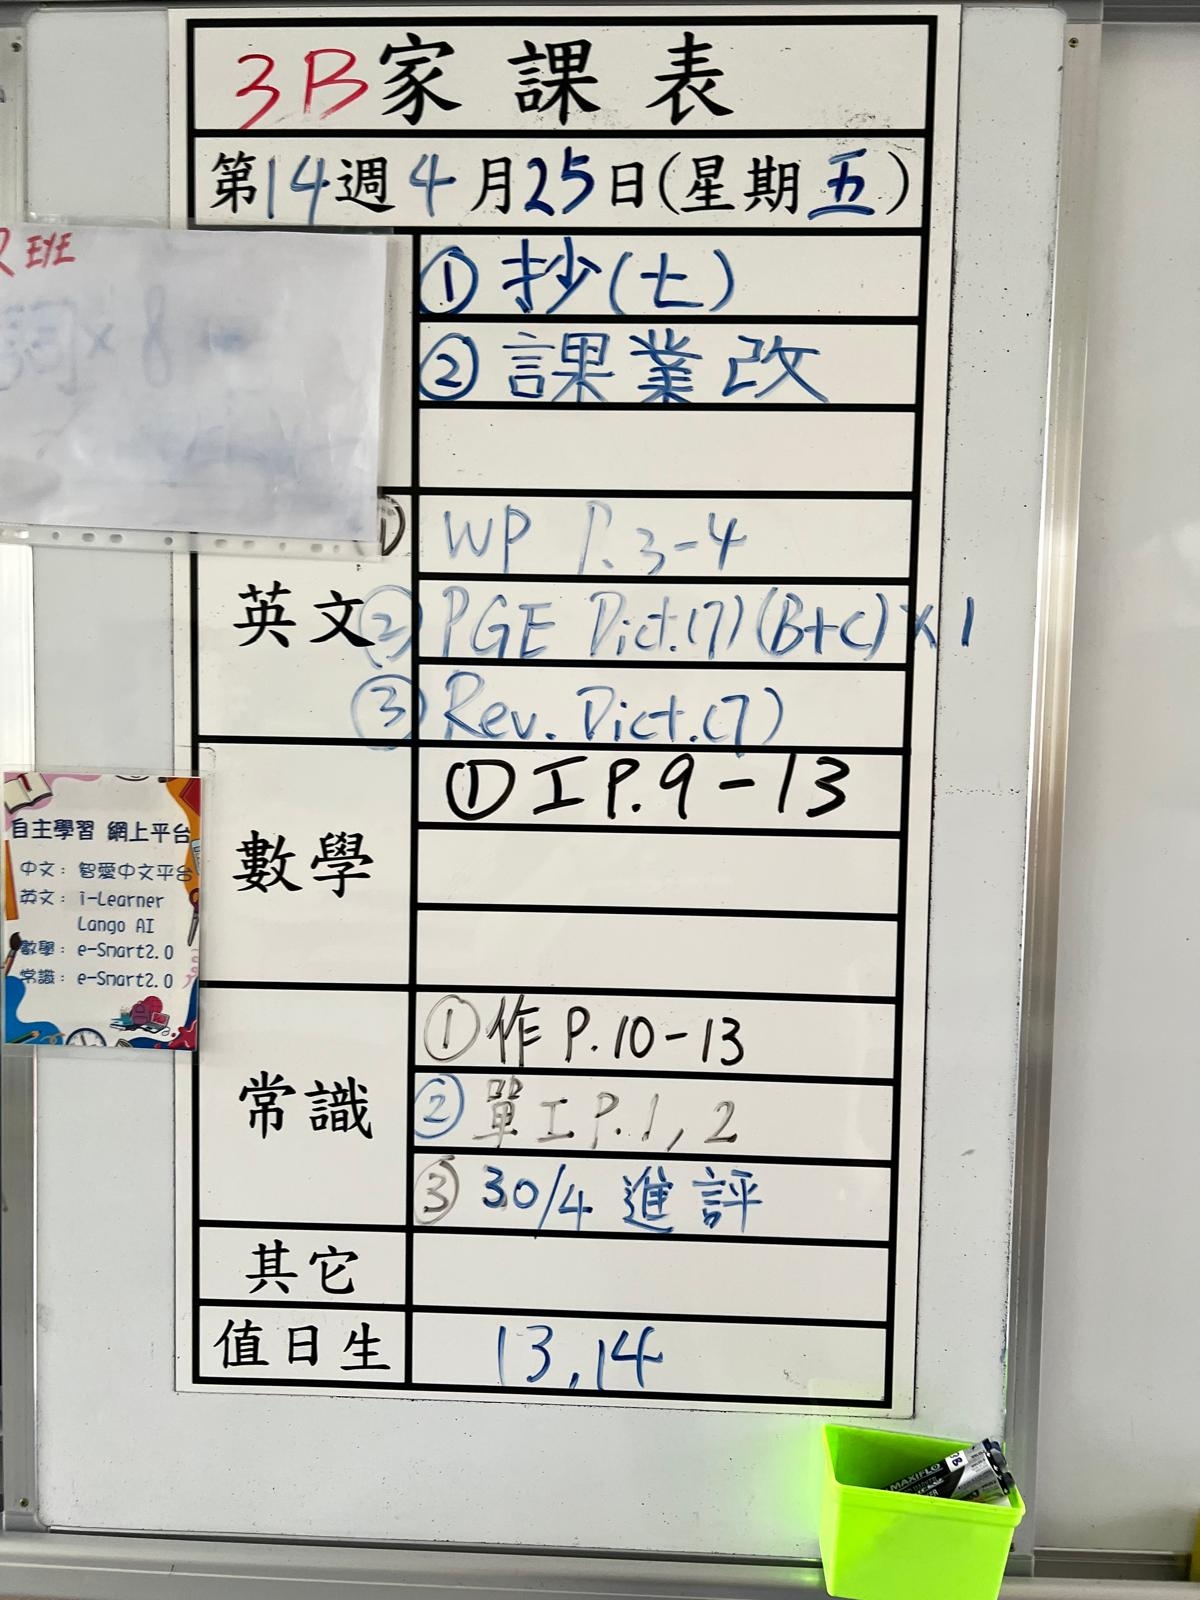 3B家課表
第14週4月25日(星期五)
R EYE
① 抄(七)
② 課業改
英文
① WP P.3-4
② PGE Dict.(7)(B+C)×1
③ Rev. Dict.(7)
數學
① 工P.9-13
自主學習 網上平台
中文：智愛中文平台
英文：i-Learner
Lango AI
數學：e-Smart2.0
常識：e-Smart2.0
常識
① 作P.10-13
② 單工P.1,2
③ 30/4 進評
其它
值日生
13,14
MAXIFLO